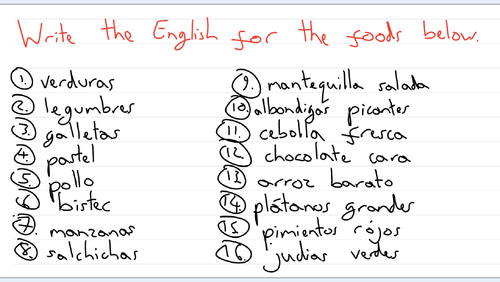 Write the English for the foods below.
1. verduras
2. legumbres
3. galletas
4. pastel
5. pollo
6. bistec
7. manzanas
8. salchichas
9. mantequilla salada
10. albondigas picantes
11. cebolla fresca
12 chocolate cara
13 arroz barato
14. plátanos grandes
15 pimientos rójos
16 judias verdes